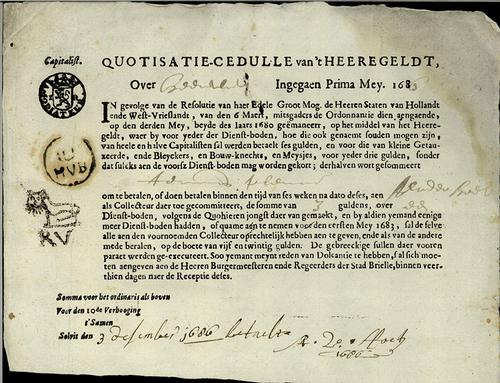 Capitalist.
QUOTISATIE-CEDULLE van 't HEEREGELDT,
Over Ingegaen Prima Mey. 168
IN gevolge van de Resolutie van haer Edele Groot Mog. de Heeren Staten van Hollandt
ende West-Vrieslandt, van den 6 Maert, mitsgaders de Ordonnantie dien aengaende,
op den derden Mey, beyde des Jaers 1680 geëmaneert, op het middel van het Heere-
geldt, waer by voor yeder der Dienst-boden, hoe die oock genaemt souden mogen zijn,
van heele en halve Capitalisten sal werden betaelt ses gulden, en voor die van kleine Getau-
xeerde, ende Bleyckers, en Bouw-knechts, en Meysjes, voor yeder drie gulden, sonder
dat sulcks aen de voorsz Dienst-boden mag worden gekort; derhalven wort gesommeert
om te betalen, of doen betalen binnen den tijd van ses weken na dato deses, aen
als Collecteur daer toe gecommitteert, de somme van 3 guldens, over
Dienst-boden, volgens de Quohieren jongst daer van gemaekt, en by aldien yemand eenige
meer Dienst-boden hadden, of quame aen te nemen voor den eersten Mey 1683, sal de selve
alle aen den voornoemden Collecteur oprechtelijk hebben aen te geven, ende als van de andere
mede betalen, op de boete van vijf en twintig gulden. De gebreckige sullen daer vooren
paraet werden ge-executeert. Soo yemant meynt reden van Doleantie te hebben, sal sich moe-
ten aengeven aen de Heeren Burgermeesteren ende Regeerders der Stad Brielle, binnen veer-
thien dagen naer de Receptie deses.
Somma voor het ordinaris als boven
Voor den 10de Verhooging
t' Samen
Solvit den 3 desember 1686 betaelt
1686
XV